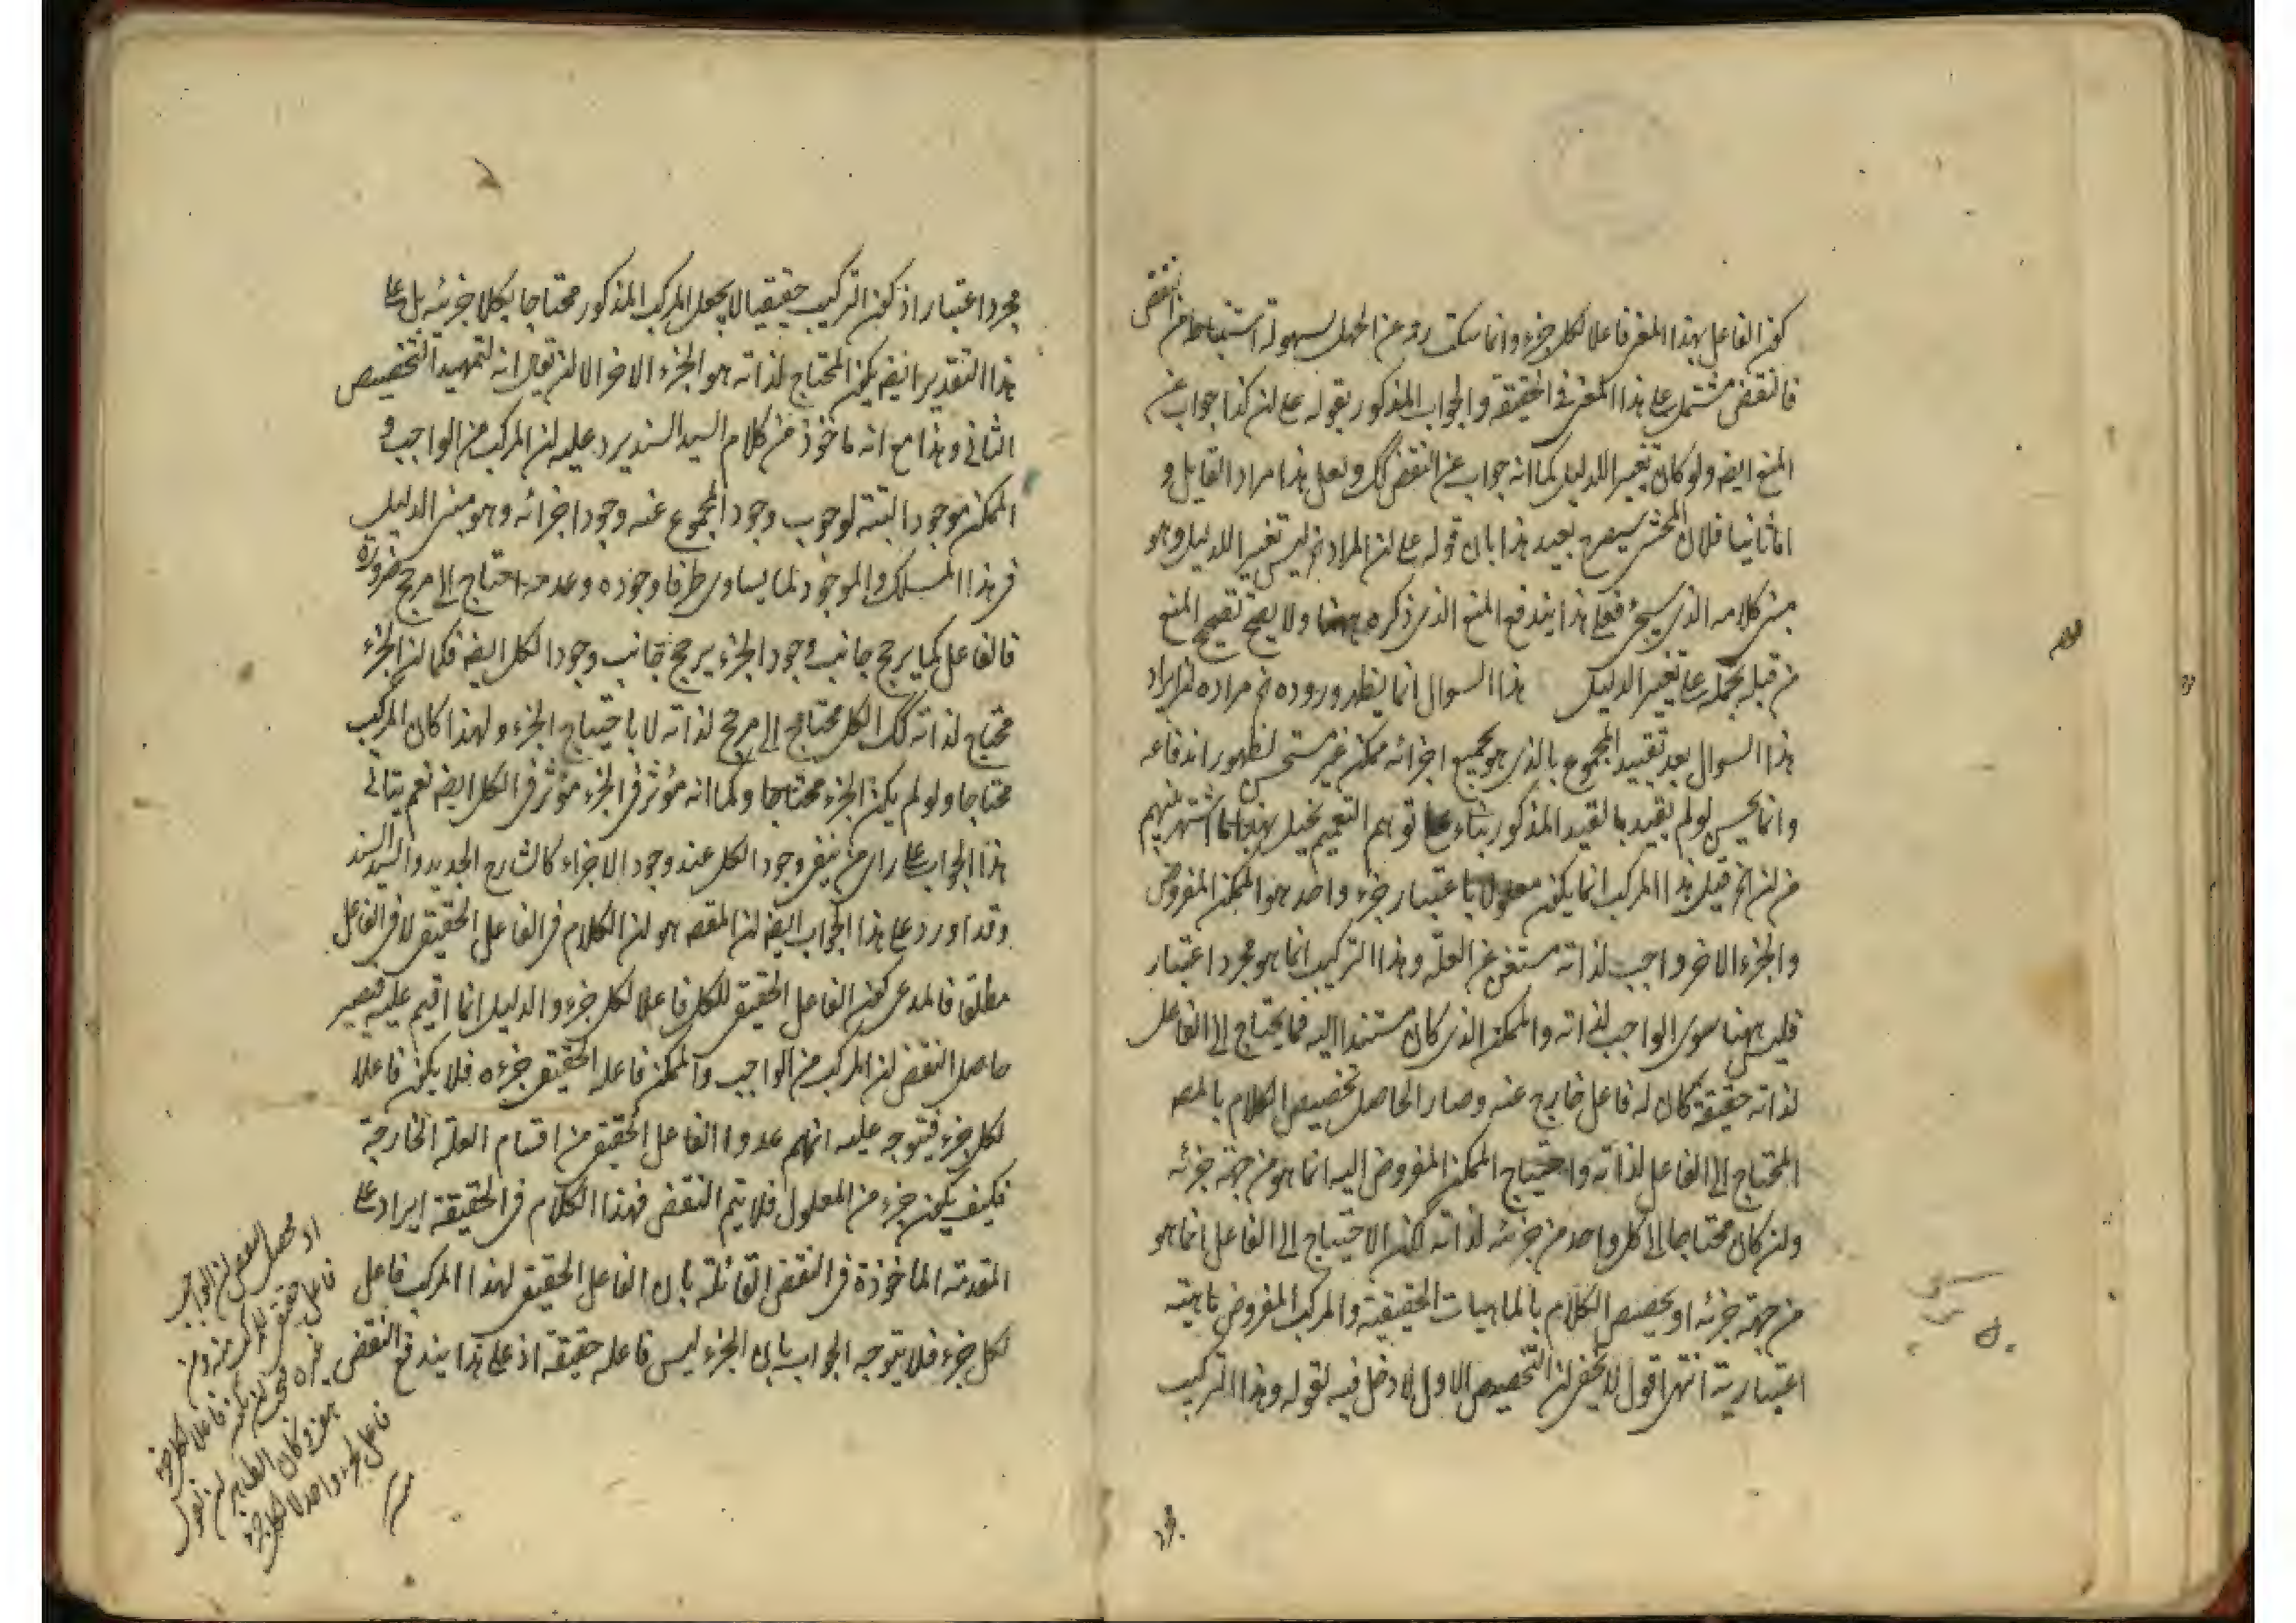 كون الفاعل بهذا المعنى فاعلا لكل جزء وانما سكت ره عن الحمل لسهولة استنباطه من النقض
فالنقض مشتمل على هذا المعنى فى الحقيقة والجواب المذكور بقوله على ان كذا جواب عن
المنع ايضه ولو كان تغيير الدليل كما انه جواب عن النقض كك ولعل هذا مراد القايل و
اما ثانيا فلان المحشى سيصرح بعيد هذا بان قوله على ان المراد اه ليس تغيير الدليل وهو
مبنى كلامه الذى سيجئ فعلى هذا يندفع المنع الذى ذكره ههنا ولا يصح تصحيح المنع
من قبله بحمله على تغيير الدليل هذا السوال انما يظهر وروده ثم مراده ان ايراد
هذا السوال بعد تقييد المجموع بالذى هو بجميع اجزائه ممكن غير مستحسن لظهور اندفاعه
وانما يحسن لو لم يقيد بالقيد المذكور بناء على توهم التعميم بخيل بهذا ما اشتهر بينهم
من ان اه قيل هذا المركب انما يكون معلولا باعتبار جزء واحد هو الممكن المفروض
والجزء الاخر واجب لذاته مستغن عن العلة وهذا التركيب انما هو مجرد اعتبار
فليس ههنا سوى الواجب لذاته والممكن الذى كان مستندا اليه فما يحتاج الى الفاعل
لذاته حقيقة كان له فاعل خارج عنه وصار الحاصل تخصيص الكلام بالمصه
المحتاج الى الفاعل لذاته واحتياج الممكن المفروض اليه انما هو من جهة جزئه
وان كان محتاجا الى كل واحد من جزئه لذاته لكن الاحتياج الى الفاعل انما هو
من جهة جزئه او تخصيص الكلام بالماهيات الحقيقية والمركب المفروض ماهيته
اعتبارية انتهى اقول لا يخفى ان التخصيص الاول لا دخل فيه لقوله وهذا التركيب
مجرد
مجرد اعتبار اذ كون التركيب حقيقيا لا يجعل المركب المذكور محتاجا بكلا جزئه بل على
هذا التقدير ايضه يكون المحتاج لذاته هو الجزء الاخر الا ان يقال انه لتمهيد التخصيص
الثانى وهذا مع انه ماخوذ من كلام السيد السند يرد عليه ان المركب من الواجب و
الممكن موجود البتة لوجوب وجود المجموع عند وجود اجزائه وهو مبنى الدليل
فى هذا المسلك والموجود لما يساوى طرفا وجوده وعدمه احتاج الى مرجح ضرورة
فالفاعل كما يرجح جانب وجود الجزء يرجح جانب وجود الكل ايضه فكما ان الجزء
محتاج لذاته كك الكل محتاج الى مرجح لذاته لا باحتياج الجزء ولهذا كان المركب
محتاجا ولو لم يكن الجزء محتاجا وكما انه مؤثر فى الجزء مؤثر فى الكل ايضه نعم يتاتى
هذا الجواب على راى من ينفى وجود الكل عند وجود الاجزاء كالشارح الجديد والسيد السند
وقد اورد على هذا الجواب ايضه ان المقصه هو ان الكلام فى الفاعل الحقيقى لا فى الفاعل
مطلقا فالمدعى كون الفاعل الحقيقى للكل فاعلا لكل جزء والدليل انما اقيم عليه فيصير
حاصل النقض ان المركب من الواجب والممكن فاعله الحقيقى جزءه فلا يكون فاعلا
لكل جزء فيتوجه عليه انهم عدوا الفاعل الحقيقى من اقسام العلة الخارجة
فكيف يكون جزء من المعلول فلا يتم النقض فهذا الكلام فى الحقيقة ايراد على
المقدمة الماخوذة فى النقض القائلة بان الفاعل الحقيقى لهذا المركب فاعل
لكل جزء فلا يتوجه الجواب بان الجزء ليس فاعله حقيقة اذ على هذا يندفع النقض
اذ محصل النقض ان الواجب
فاعل حقيقى للمركب منه ومن
غيره فيجب ان يكون فاعلا لكل جزء
منه وكان الظاهر ان يقول
فاعل لجزء واحد لا لكل جزء